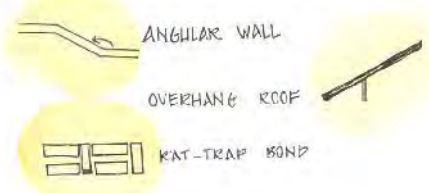 ANGULAR WALL
OVERHANG ROOF
RAT-TRAP BOND